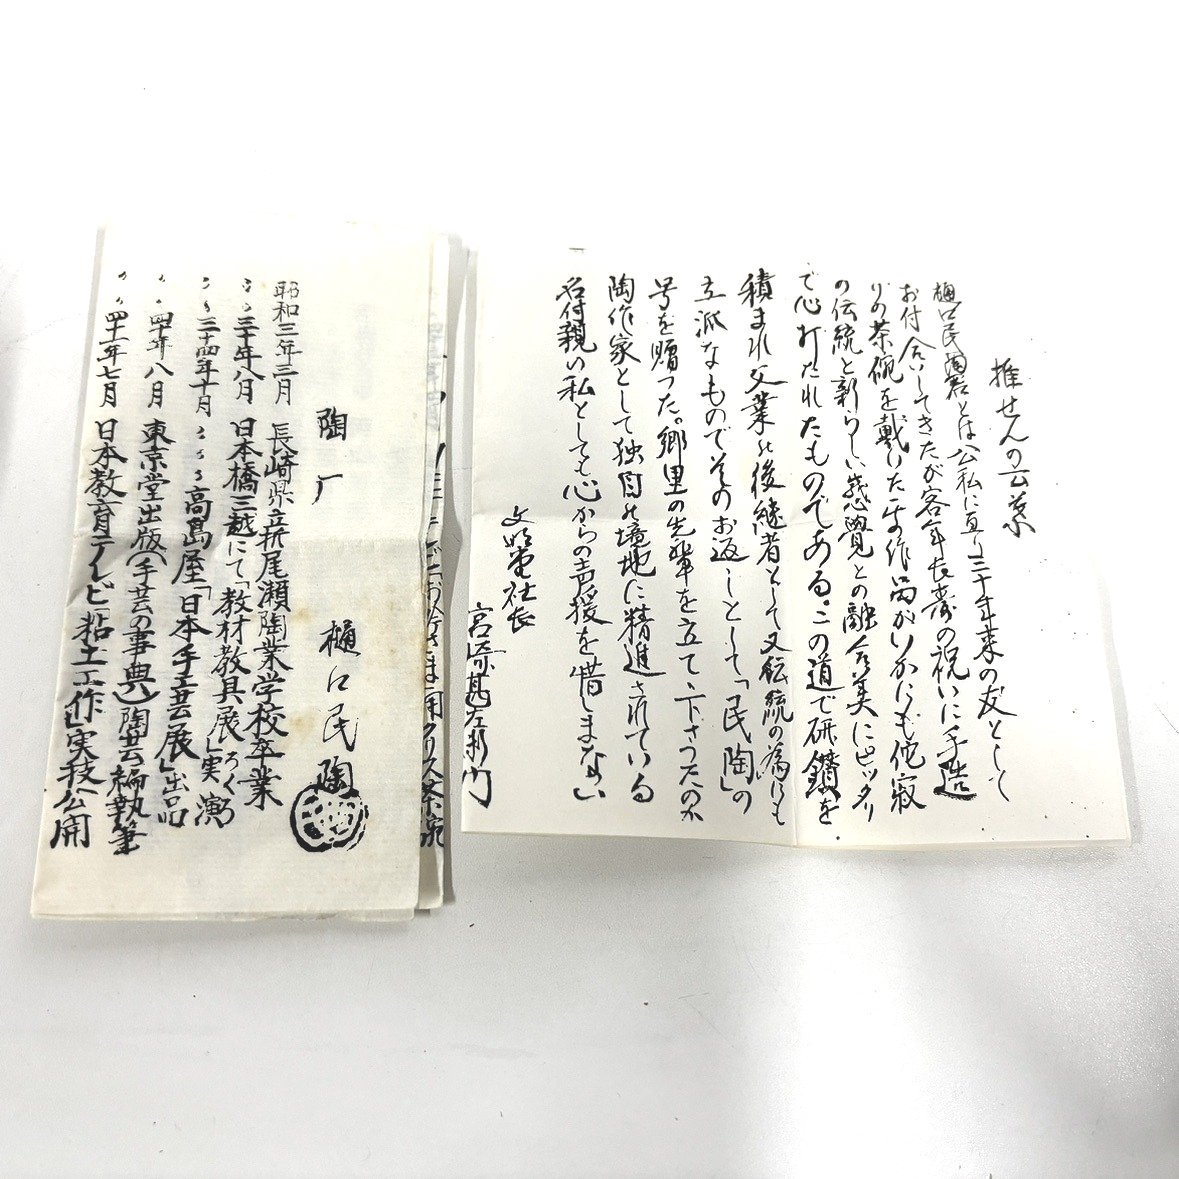 推せんの言葉
樋口民陶君とは公私に亘り三十年来の友として
お付合いしてきたが客年長寿の祝いに手造
りの茶碗を戴いた。その作品がいかにも侘寂
の伝統と新らしい感覚との融合美にピッタリ
で心打たれたものである。この道で研鑚を
積まれ父業の後継者として又伝統の為にも
立派なものでそのお返しとして「民陶」の
号を贈った。郷里の先輩を立て下さったのか
陶作家として独自の境地に精進されている
名付親の私としても心からの声援を惜しまない
文明堂社長
宮崎甚左衛門
陶歴
樋口民陶
昭和三年三月 長崎県立折尾瀬陶業学校卒業
〃〃三十年八月 日本橋三越にて「教材教具展」ろくろ実演
〃〃三十四年十月 〃〃〃高島屋「日本手芸展」出品
〃〃四十年八月 東京堂出版(手芸の事典)陶芸編執筆
〃〃四十一年七月 日本教育テレビ「粘土工作」実技公開